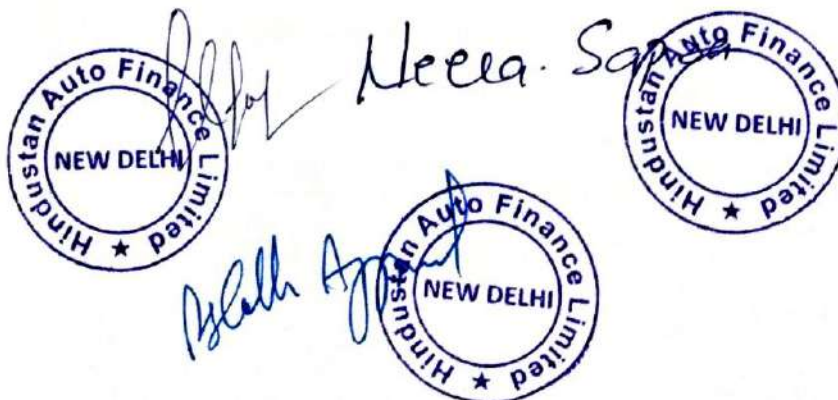 Hindustan Auto Finance Limited ★
NEW DELHI
Neera
Hindustan Auto Finance Limited ★
NEW DELHI
Hindustan Auto Finance Limited ★
NEW DELHI